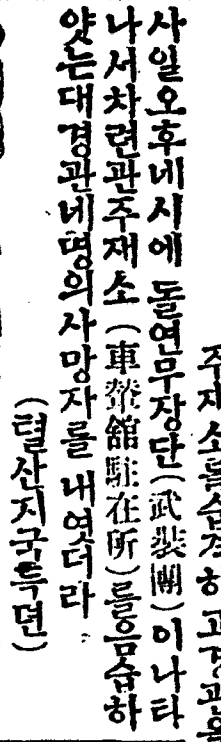 주재소를습격하고경관을
사일오후네시에 돌연무장단(武裝團)이나타
나서차련관주재소(車輦舘駐在所)를음습하
얏는대경관네명의사망자를 내엿더라
(텰산지국특뎐)